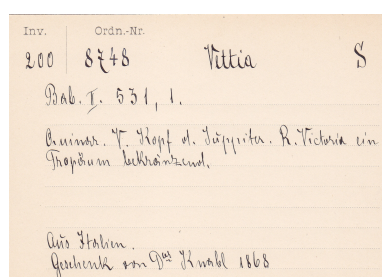 Inv. Ordn.-Nr.
200 8748 Vettia S
Bab. II. 531, 1.
Quinar. V. Kopf d. Juppiter. R. Victoria ein
Tropäum bekränzend.
Aus Italien.
Geschenk von Dr Knabl 1868